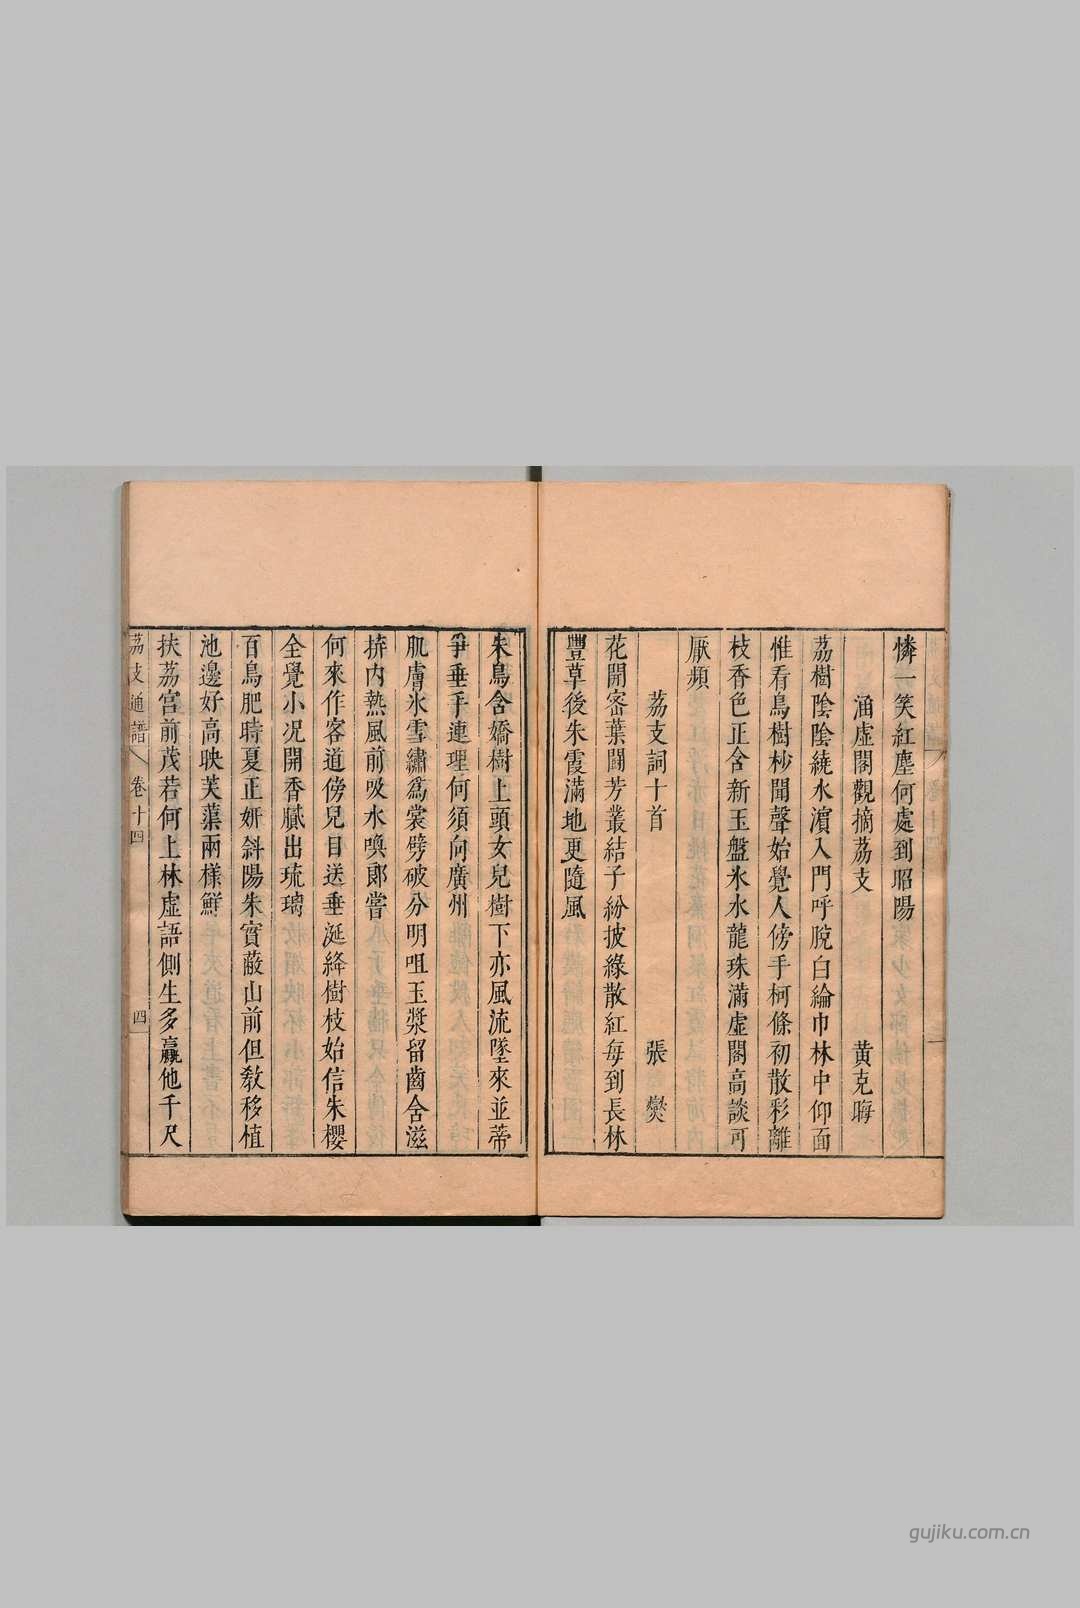 憐一笑紅塵何處到昭陽
涵虛閣觀摘荔支 黃克晦
荔樹陰陰繞水濵入門呼脫白綸巾林中仰面
惟看鳥樹杪聞聲始覺人傍手柯條初散彩離
枝香色正含新玉盤氷水龍珠滿虛閣高談可
厭頻
荔支詞十首 張燮
花開密葉鬪芳叢結子紛披綠散紅每到長林
豐草後朱霞滿地更隨風
朱鳥含嬌樹上頭女兒樹下亦風流墜來並蒂
爭垂手連理何須向廣州
肌膚氷雪繡為裳劈破分明咀玉漿留齒含滋
擠内熱風前吸水喚郎嘗
何來作客道傍兒目送垂涎絳樹枝始信朱櫻
全覺小况開香膩出琉璃
百鳥肥時夏正妍斜陽朱實蔽山前但教移植
池邊好高映芙蕖兩樣鮮
扶荔宮前茂若何上林虛語側生多贏他千尺
荔支通譜 卷十四 四
gujiku.com.cn